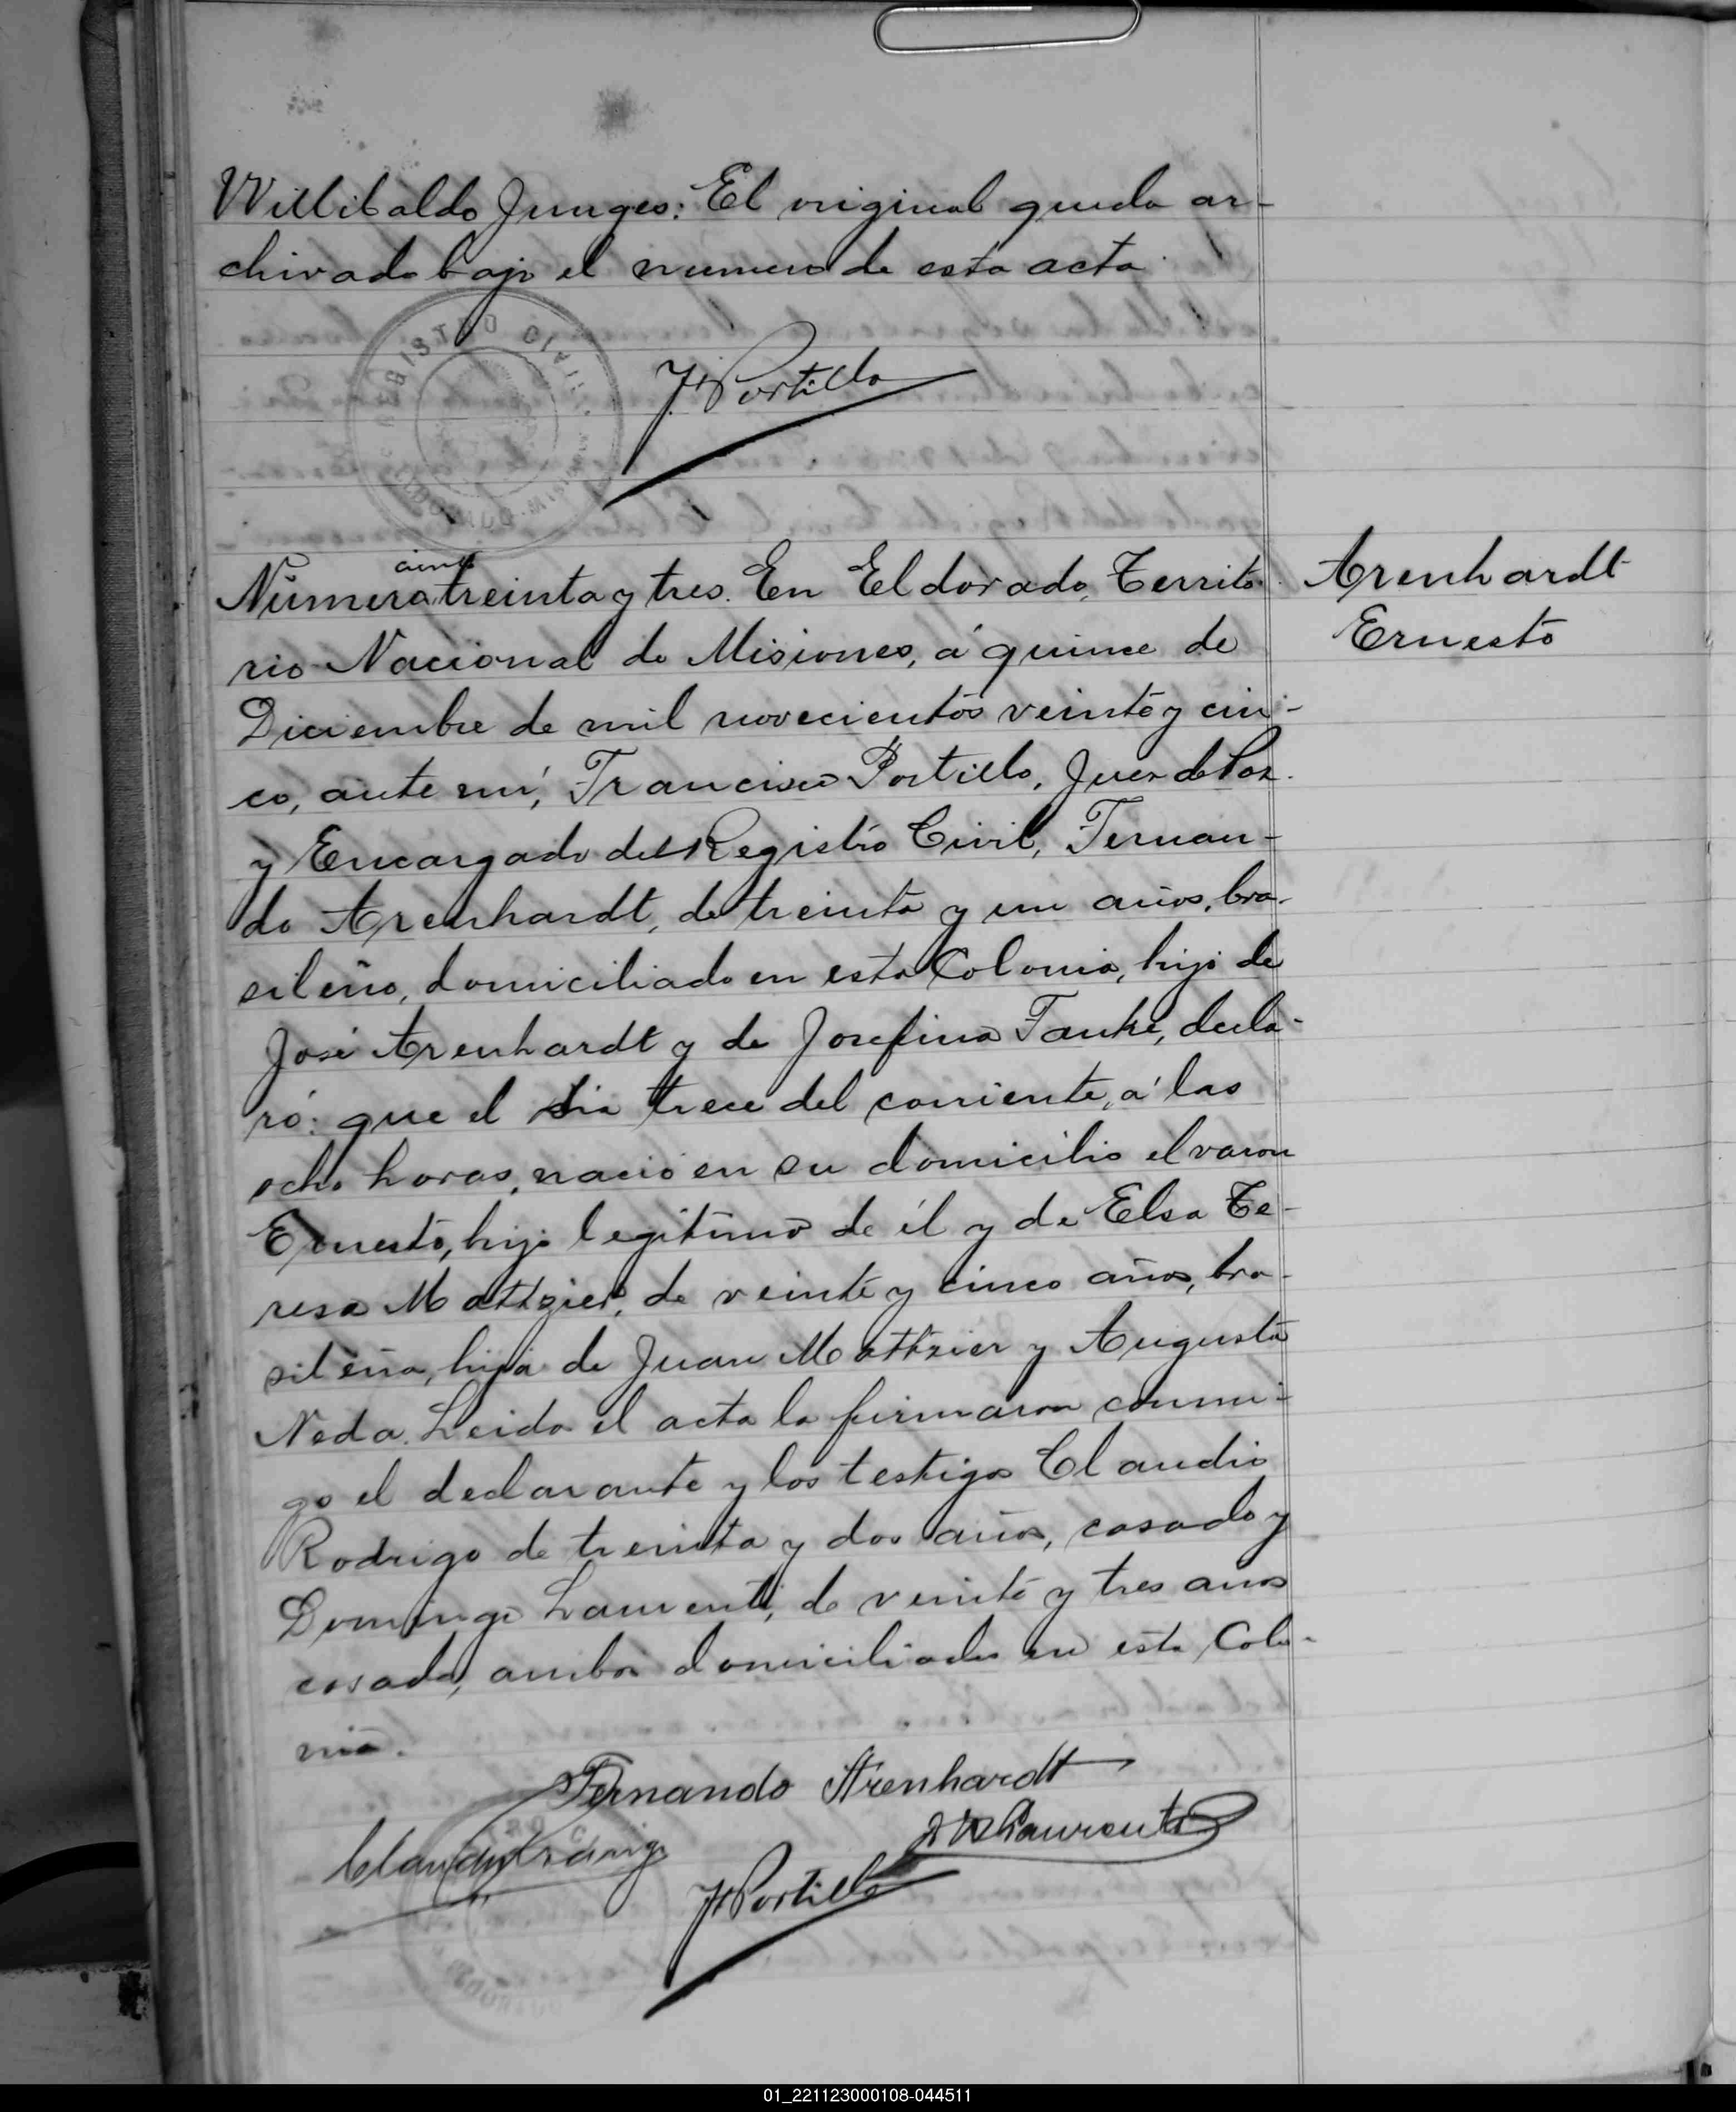 Willibaldo Junges: El original queda ar-
chivado bajo el numero de esta acta.
REGISTRO CIVIL
F. Portillo
ciento
Número treinta y tres. En Eldorado, Territo-
rio Nacional de Misiones, á quince de
Diciembre de mil novecientos veinte y cin-
co, ante mí, Francisco Portillo, Juez de Paz
y Encargado del Registro Civil, Fernan-
do Arenhardt, de treinta y un años, bra-
sileño, domiciliado en esta Colonia, hijo de
José Arenhardt y de Josefina Tanke, decla-
ró: que el dia trece del corriente, á las
ocho horas, nació en su domicilio el varon
Ernesto, hijo legitimo de él y de Elsa Te-
resa Mattzier, de veinte y cinco años, bra-
sileña, hija de Juan Mattzier y Augusta
Neda. Leida el acta la firmaron conmi-
go el declarante y los testigos Claudio
Rodrigo de treinta y dos años, casado y
Domingo Laurenti, de veinte y tres años
casado, ambos domiciliados en esta Colo-
nia.
Arenhardt
Ernesto
Fernando Arenhardt
Laurenti
F. Portillo
01_221123000108-044511